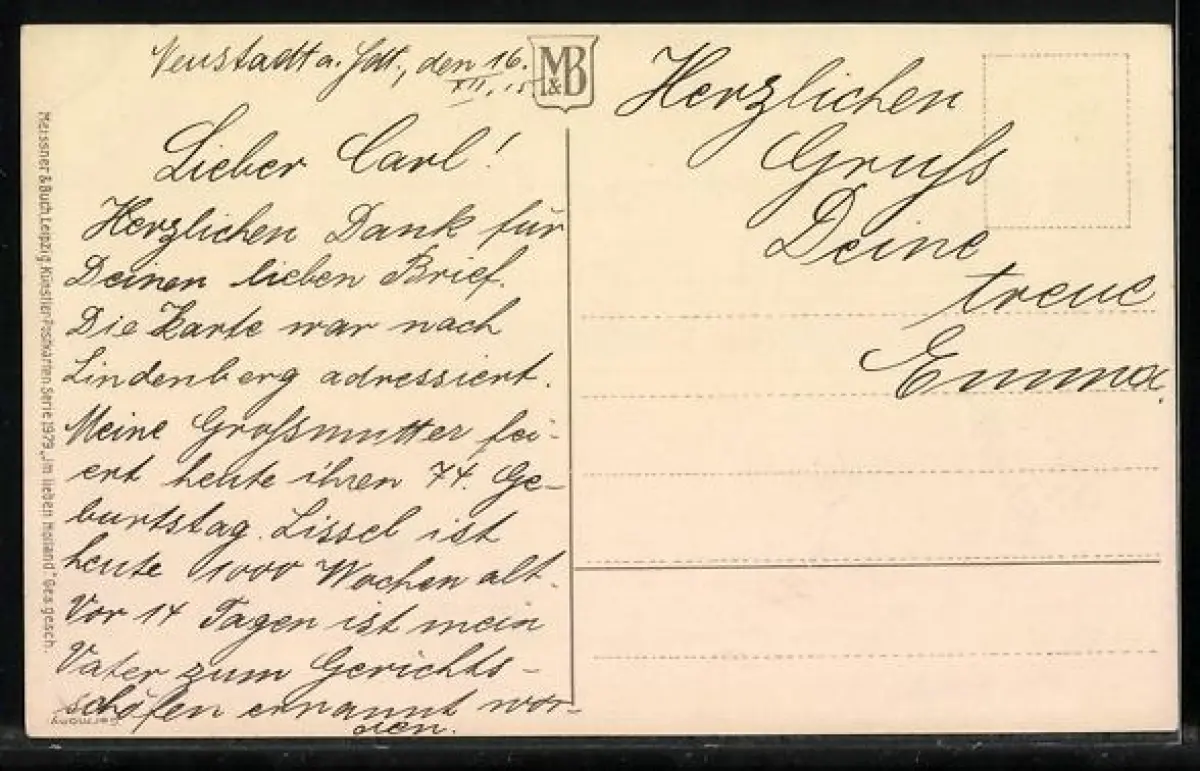 Neustadt a. Hdt., den 16.
XII. 15
Lieber Carl!
Herzlichen Dank für
Deinen lieben Brief.
Die Karte war nach
Lindenberg adressiert.
Meine Großmutter fei-
ert heute ihren 74. Ge-
burtstag. Lissel ist
heute 1000 Wochen alt.
Vor 14 Tagen ist mein
Vater zum Gerichts-
schöffen ernannt wor-
den.
M&B
Herzlichen
Gruß
Deine
treue
Emma.
Meissner & Buch, Leipzig. Künstler-Postkarten Serie 1979 „Im lieben Holland" Ges. gesch.
Germany